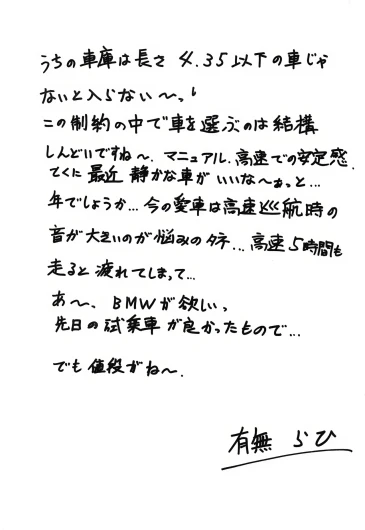 うちの車庫は長さ 4.35以下の車じゃ
ないと入らない〜っ!
この制約の中で車を選ぶのは結構
しんどいですね〜、マニュアル、高速での安定感、
てくに 最近 静かな車が いいな〜ぁっと...
年でしょうか... 今の愛車は高速巡航時の
音が大きいのが悩みのタネ... 高速5時間も
走ると 疲れてしまって...
あ〜、BMWが欲しいっ
先日の試乗車が良かったもので...
でも値段がね〜、
有無 らひ